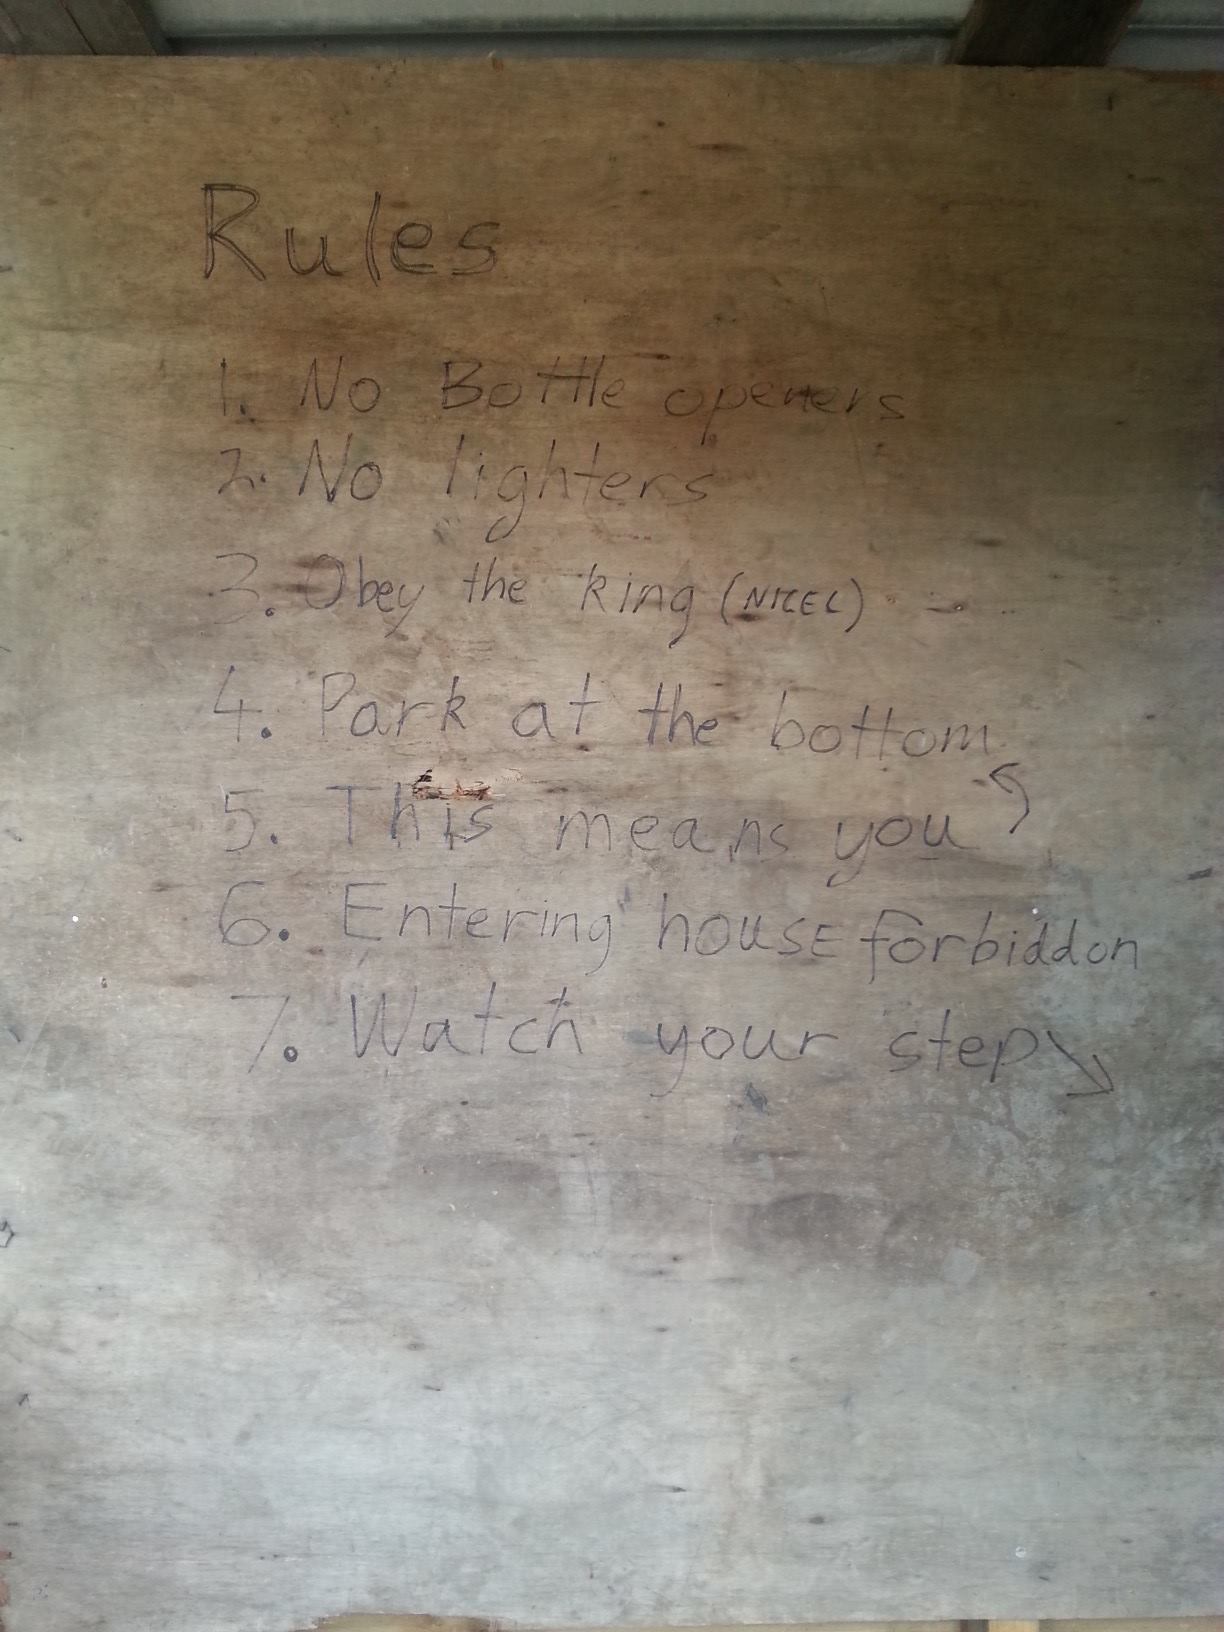 Rules
1. No Bottle openers
2. No lighters
3. Obey the king
4. Park at the bottom
5. This means you
6. Entering house forbiddon
7. Watch your step